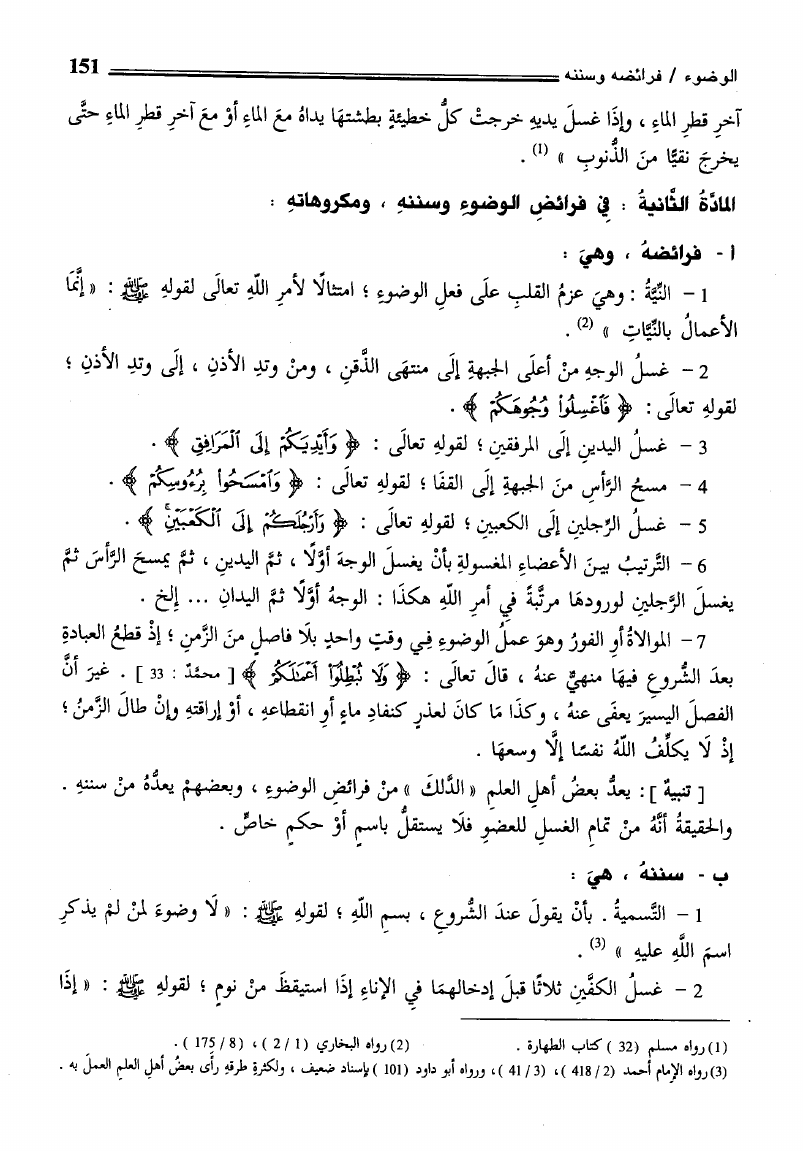 الوضوء / فرائضه وسننه 151
آخرِ قطرِ الماءِ ، وإذَا غسلَ يديهِ خرجتْ كلُّ خطيئةٍ بطشتهَا يداهُ معَ الماءِ أوْ معَ آخرِ قطرِ الماءِ حتَّى
يخرجَ نقيًّا منَ الذُّنوبِ » (1) .
المادَّةُ الثَّانيةُ : فِي فرائضِ الوضوءِ وسننهِ ، ومكروهاتهِ :
أ - فرائضهُ ، وهيَ :
1 - النِّيَّةُ : وهيَ عزمُ القلبِ علَى فعلِ الوضوءِ ؛ امتثالًا لأمرِ اللَّهِ تعالَى لقولهِ ﷺ : « إنَّمَا
الأعمالُ بالنِّيَّاتِ » (2) .
2 - غسلُ الوجهِ منْ أعلَى الجبهةِ إلَى منتهَى الذَّقنِ ، ومنْ وتدِ الأذنِ ، إلَى وتدِ الأذنِ ؛
لقولهِ تعالَى : ﴿ فَٱغْسِلُوا۟ وُجُوهَكُمْ ﴾ .
3 - غسلُ اليدينِ إلَى المرفقينِ ؛ لقولهِ تعالَى : ﴿ وَأَيْدِيَكُمْ إِلَى ٱلْمَرَافِقِ ﴾ .
4 - مسحُ الرَّأسِ منَ الجبهةِ إلَى القفَا ؛ لقولهِ تعالَى : ﴿ وَٱمْسَحُوا۟ بِرُءُوسِكُمْ ﴾ .
5 - غسلُ الرِّجلينِ إلَى الكعبينِ ؛ لقولهِ تعالَى : ﴿ وَأَرْجُلَكُمْ إِلَى ٱلْكَعْبَيْنِ ﴾ .
6 - التَّرتيبُ بينَ الأعضاءِ المغسولةِ بأنْ يغسلَ الوجهَ أوَّلًا ، ثمَّ اليدينِ ، ثمَّ يمسحَ الرَّأسَ ثمَّ
يغسلَ الرَّجلينِ لورودهَا مرتَّبةً في أمرِ اللَّهِ هكذَا : الوجهُ أوَّلًا ثمَّ اليدانِ ... إلخ .
7 - الموالاةُ أوِ الفورُ وهوَ عملُ الوضوءِ فِي وقتٍ واحدٍ بلَا فاصلٍ منَ الزَّمنِ ؛ إذْ قطعُ العبادةِ
بعدَ الشُّروعِ فيهَا منهيٌّ عنهُ ، قالَ تعالَى : ﴿ وَلَا نُبْطِلُوٓا۟ أَعْمَـٰلَكُمْ ﴾ [ محمَّدٌ : 33 ] . غيرَ أنَّ
الفصلَ اليسيرَ يعفَى عنهُ ، وكذَا مَا كانَ لعذرٍ كنفادِ ماءٍ أوِ انقطاعهِ ، أوْ إراقتهِ وإنْ طالَ الزَّمنُ ؛
إذْ لَا يكلِّفُ اللَّهُ نفسًا إلَّا وسعهَا .
[ تنبيهٌ ] : يعدُّ بعضُ أهلِ العلمِ « الدَّلكَ » منْ فرائضِ الوضوءِ ، وبعضهمْ يعدُّهُ منْ سننهِ .
والحقيقةُ أنَّهُ منْ تمامِ الغسلِ للعضوِ فلَا يستقلُّ باسمٍ أوْ حكمٍ خاصٍّ .
ب - سننهُ ، هيَ :
1 - التَّسميةُ . بأنْ يقولَ عندَ الشُّروعِ ، بسمِ اللَّهِ ؛ لقولهِ ﷺ : « لَا وضوءَ لمنْ لمْ يذكرِ
اسمَ اللَّهِ عليهِ » (3) .
2 - غسلُ الكفَّينِ ثلاثًا قبلَ إدخالهمَا فِي الإناءِ إذَا استيقظَ منْ نومٍ ؛ لقولهِ ﷺ : « إذَا
(1) رواه مسلم (32 ) كتاب الطهارة . (2) رواه البخاري (1 / 2 ) ، (8 / 175 ) .
(3) رواه الإمام أحمد (2 / 418 )، (3 / 41 )، ورواه أبو داود (101 ) بإسناد ضعيف ، ولكثرةِ طرقهِ رأَى بعضُ أهلِ العلمِ العملَ به .